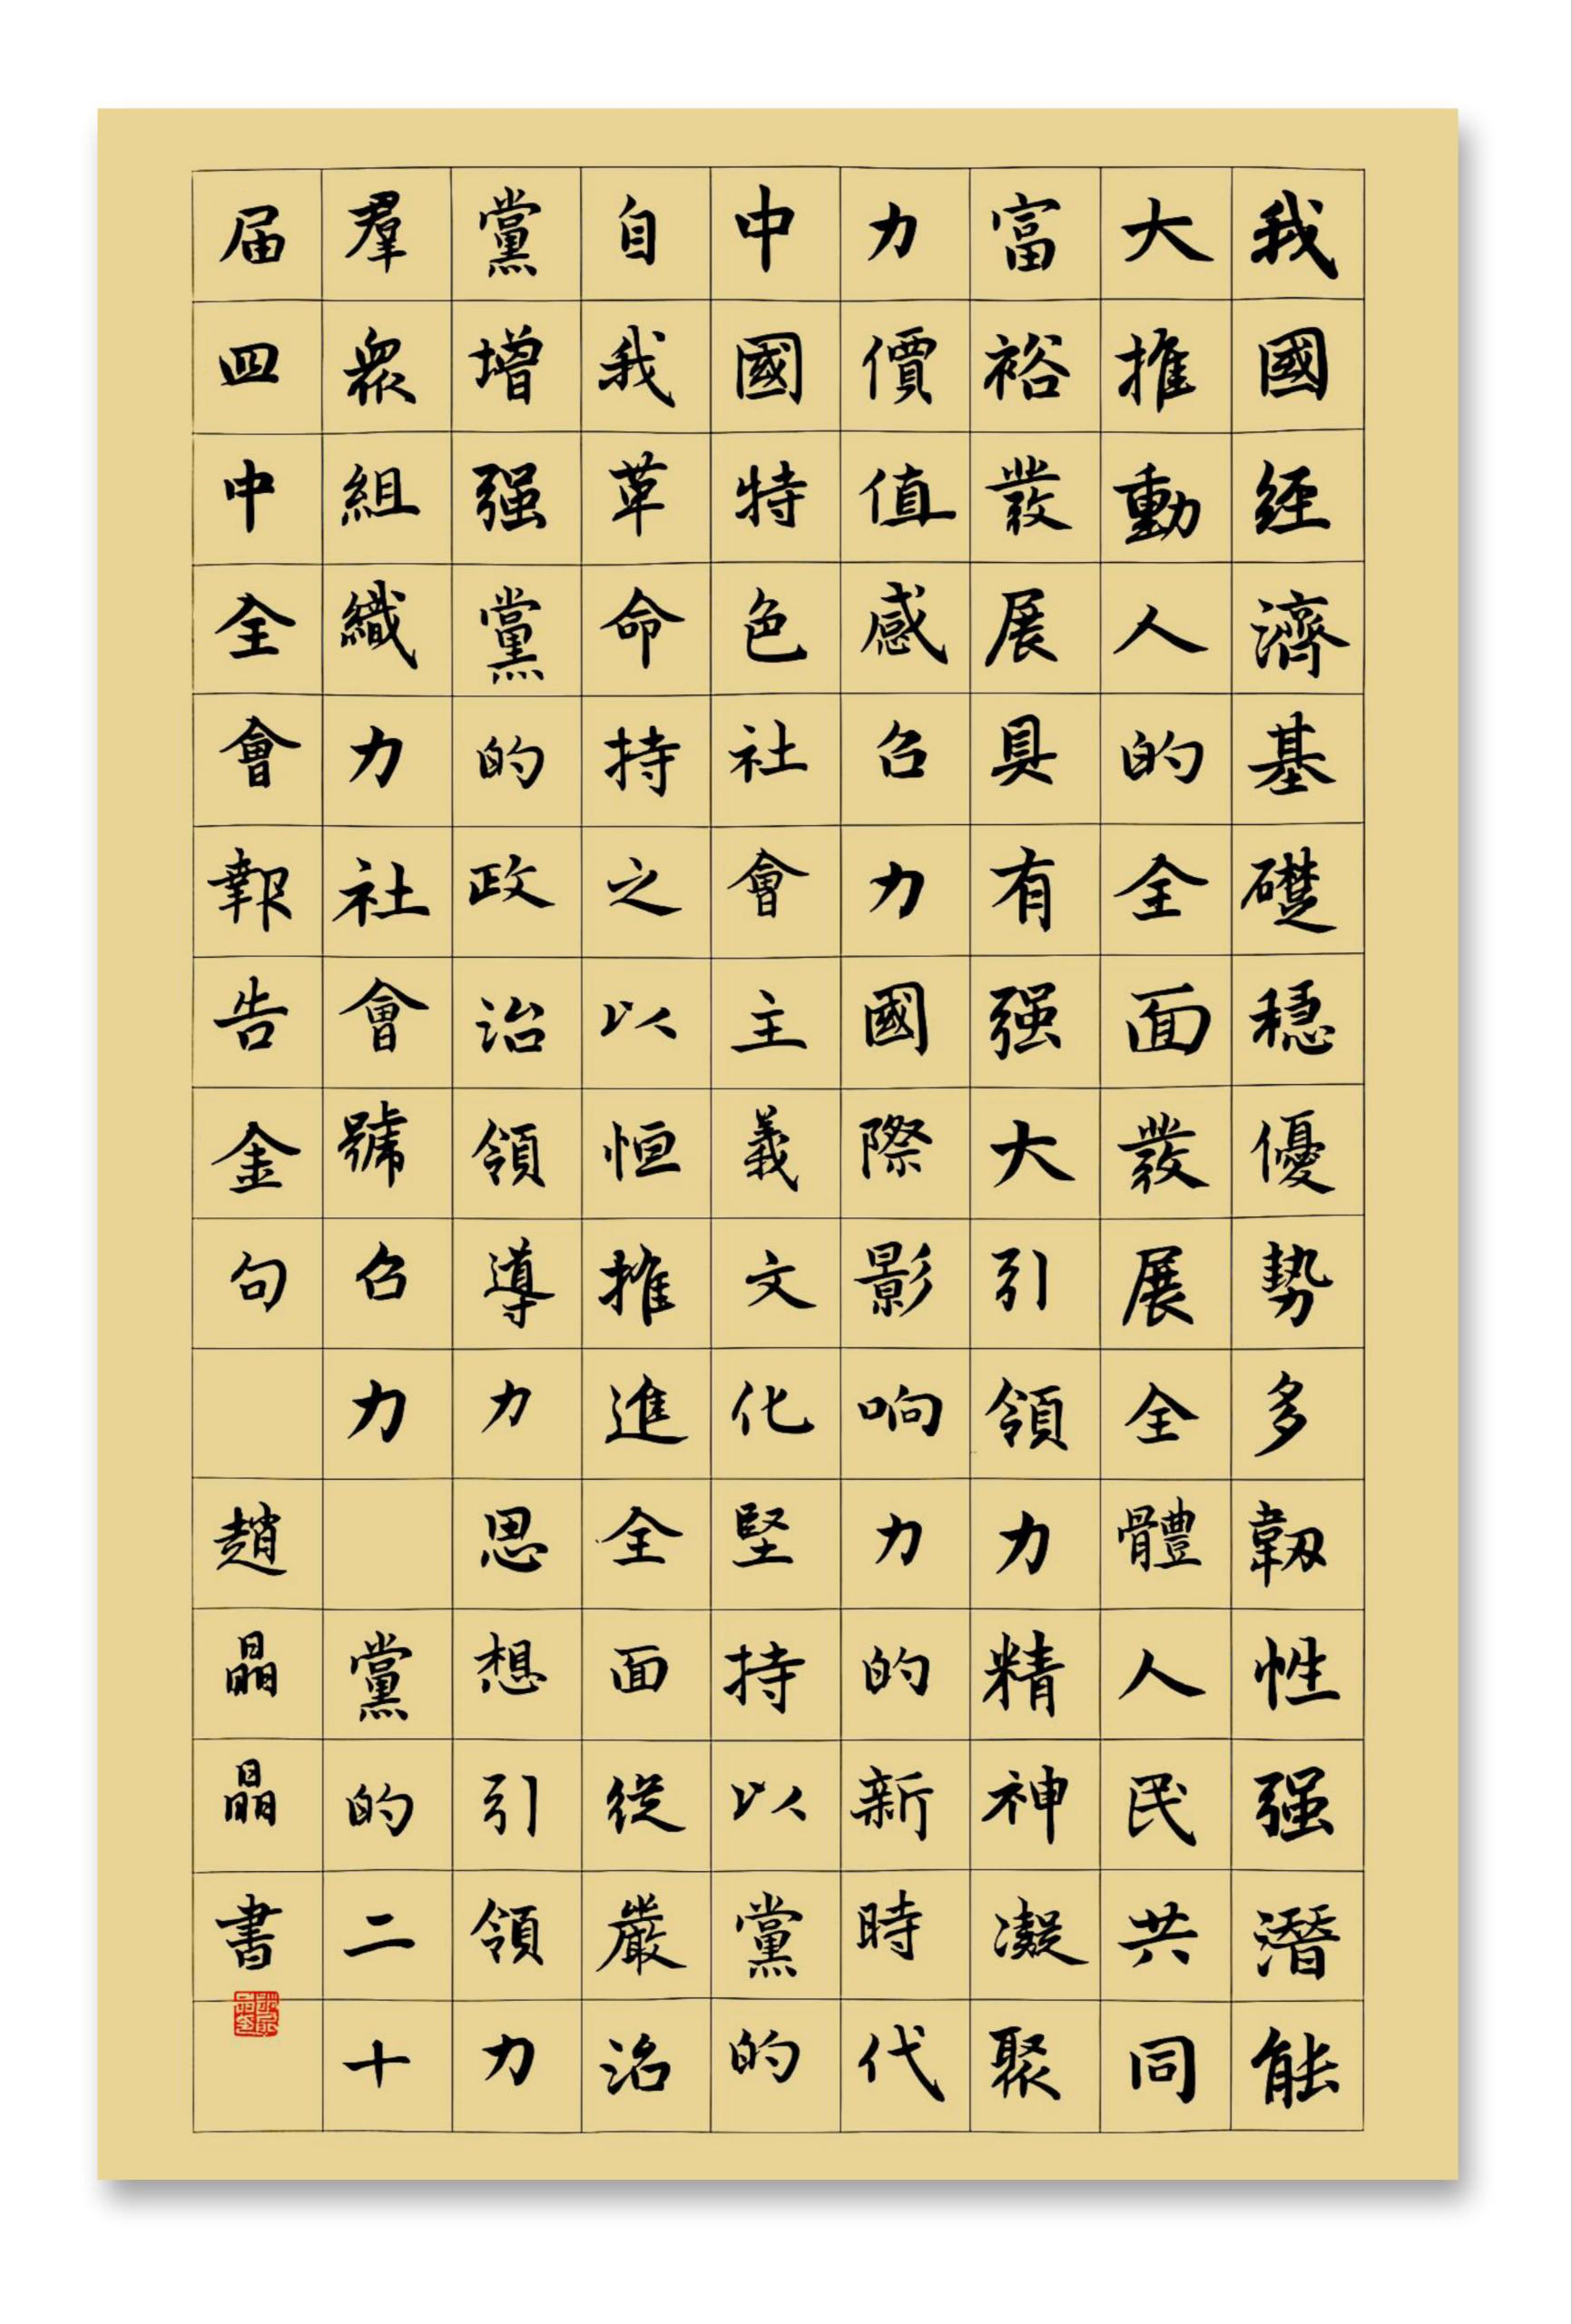 我國経濟基礎穏優勢多韌性强潛能
大推動人的全面發展全體人民共同
富裕發展具有强大引領力精神凝聚
力價值感召力國際影响力的新時代
中國特色社會主義文化堅持以黨的
自我革命持之以恒推進全面從嚴治
黨增强黨的政治領導力思想引領力
羣衆組織力社會號召力 黨的二十
届四中全會報告金句 趙晶晶書